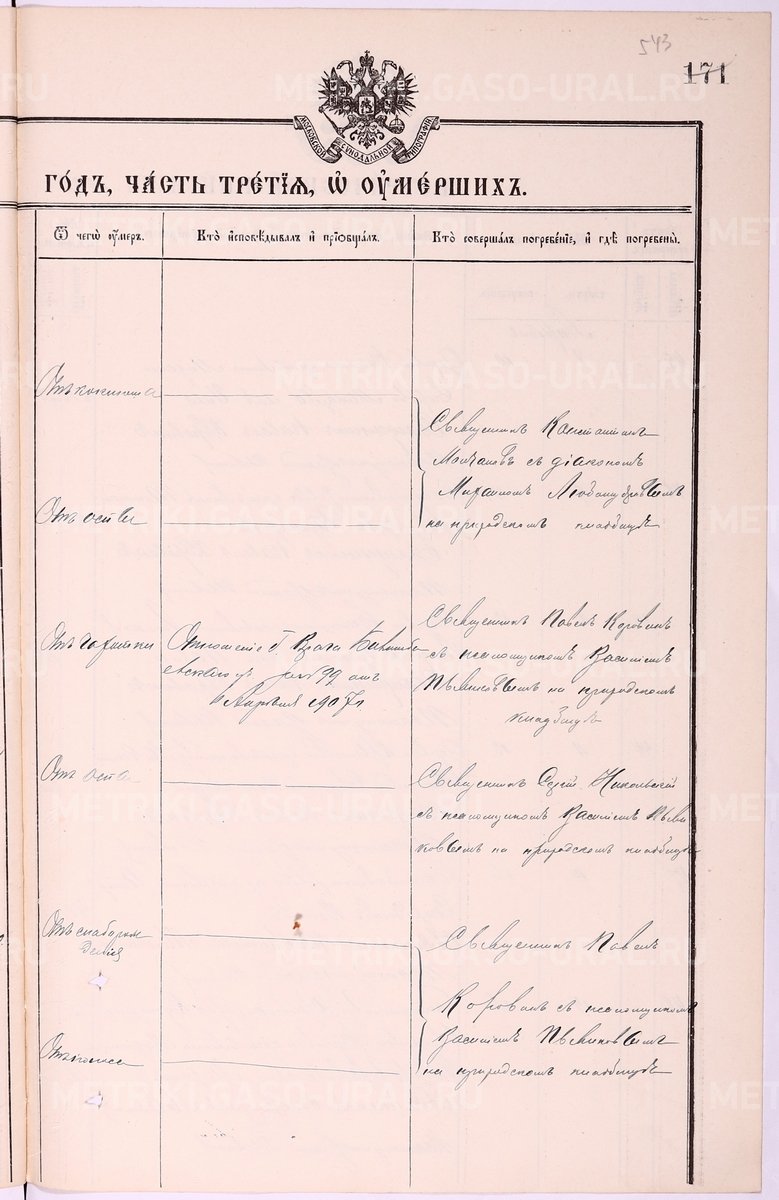 543
171
МОСКОВСКОЙ СѴНОДАЛЬНОЙ ТИПОГРАФІИ
ГО́ДЪ, ЧА́СТЬ ТРЕ́ТІѦ, Ѡ҆ ОУ҆МЕ́РШИХЪ.
Ѿ чегѡ̀ оу҆́меръ.
Кто̀ и҆сповѣ́дывалъ и҆ прїѡбща́лъ.
Кто̀ соверша́лъ погребе́нїе, и҆ гдѣ̀ погребены̀.
Отъ коклюша
Священникъ Константинъ
Молчановъ съ діакономъ
Михаиломъ Любомудровымъ
на приходскомъ кладбищѣ
Отъ оспы
Отъ чахотки
Отношеніе Г. Врача
за № 99 отъ
Апрѣля 1907 г.
Священникъ Павелъ Коровинъ
съ псаломщикомъ Василіемъ
на приходскомъ
кладбищѣ
Отъ оспы
Священникъ Сергій Никольскій
съ псаломщикомъ Василіемъ
на приходскомъ кладбищѣ
Отъ слаборож
денія
Священникъ Павелъ
Коровинъ съ псаломщикомъ
Василіемъ
на приходскомъ кладбищѣ
Отъ поноса
METRIKI.GASO-URAL.RU